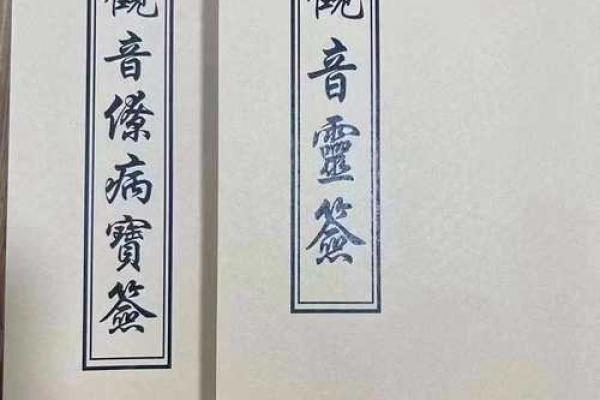 觀音僚病寶簽
觀音靈簽